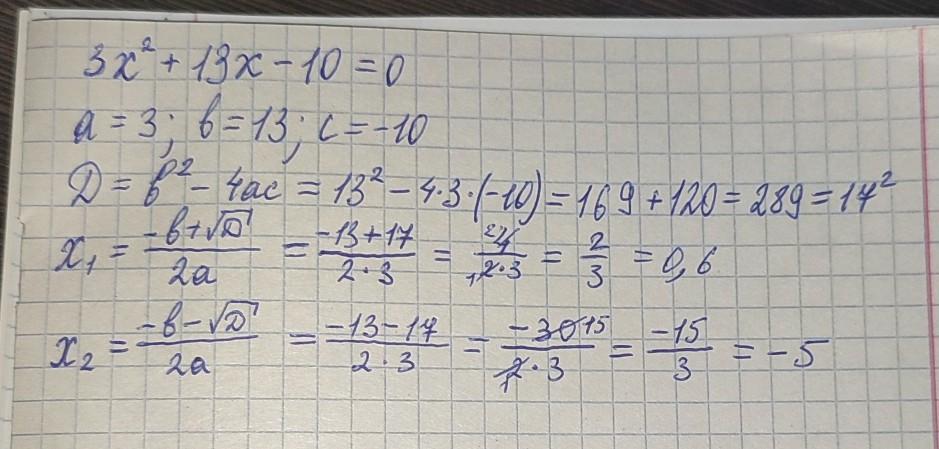 3x² + 13x - 10 = 0
a = 3; b = 13; c = -10
D = b² - 4ac = 13² - 4·3·(-10) = 169 + 120 = 289 = 17²
x₁ = (-b+√D)/(2a) = (-13+17)/(2·3) = 4/(2·3) = 2/3 = 0,6
x₂ = (-b-√D)/(2a) = (-13-17)/(2·3) = (-30)/(2·3) = (-15)/3 = -5